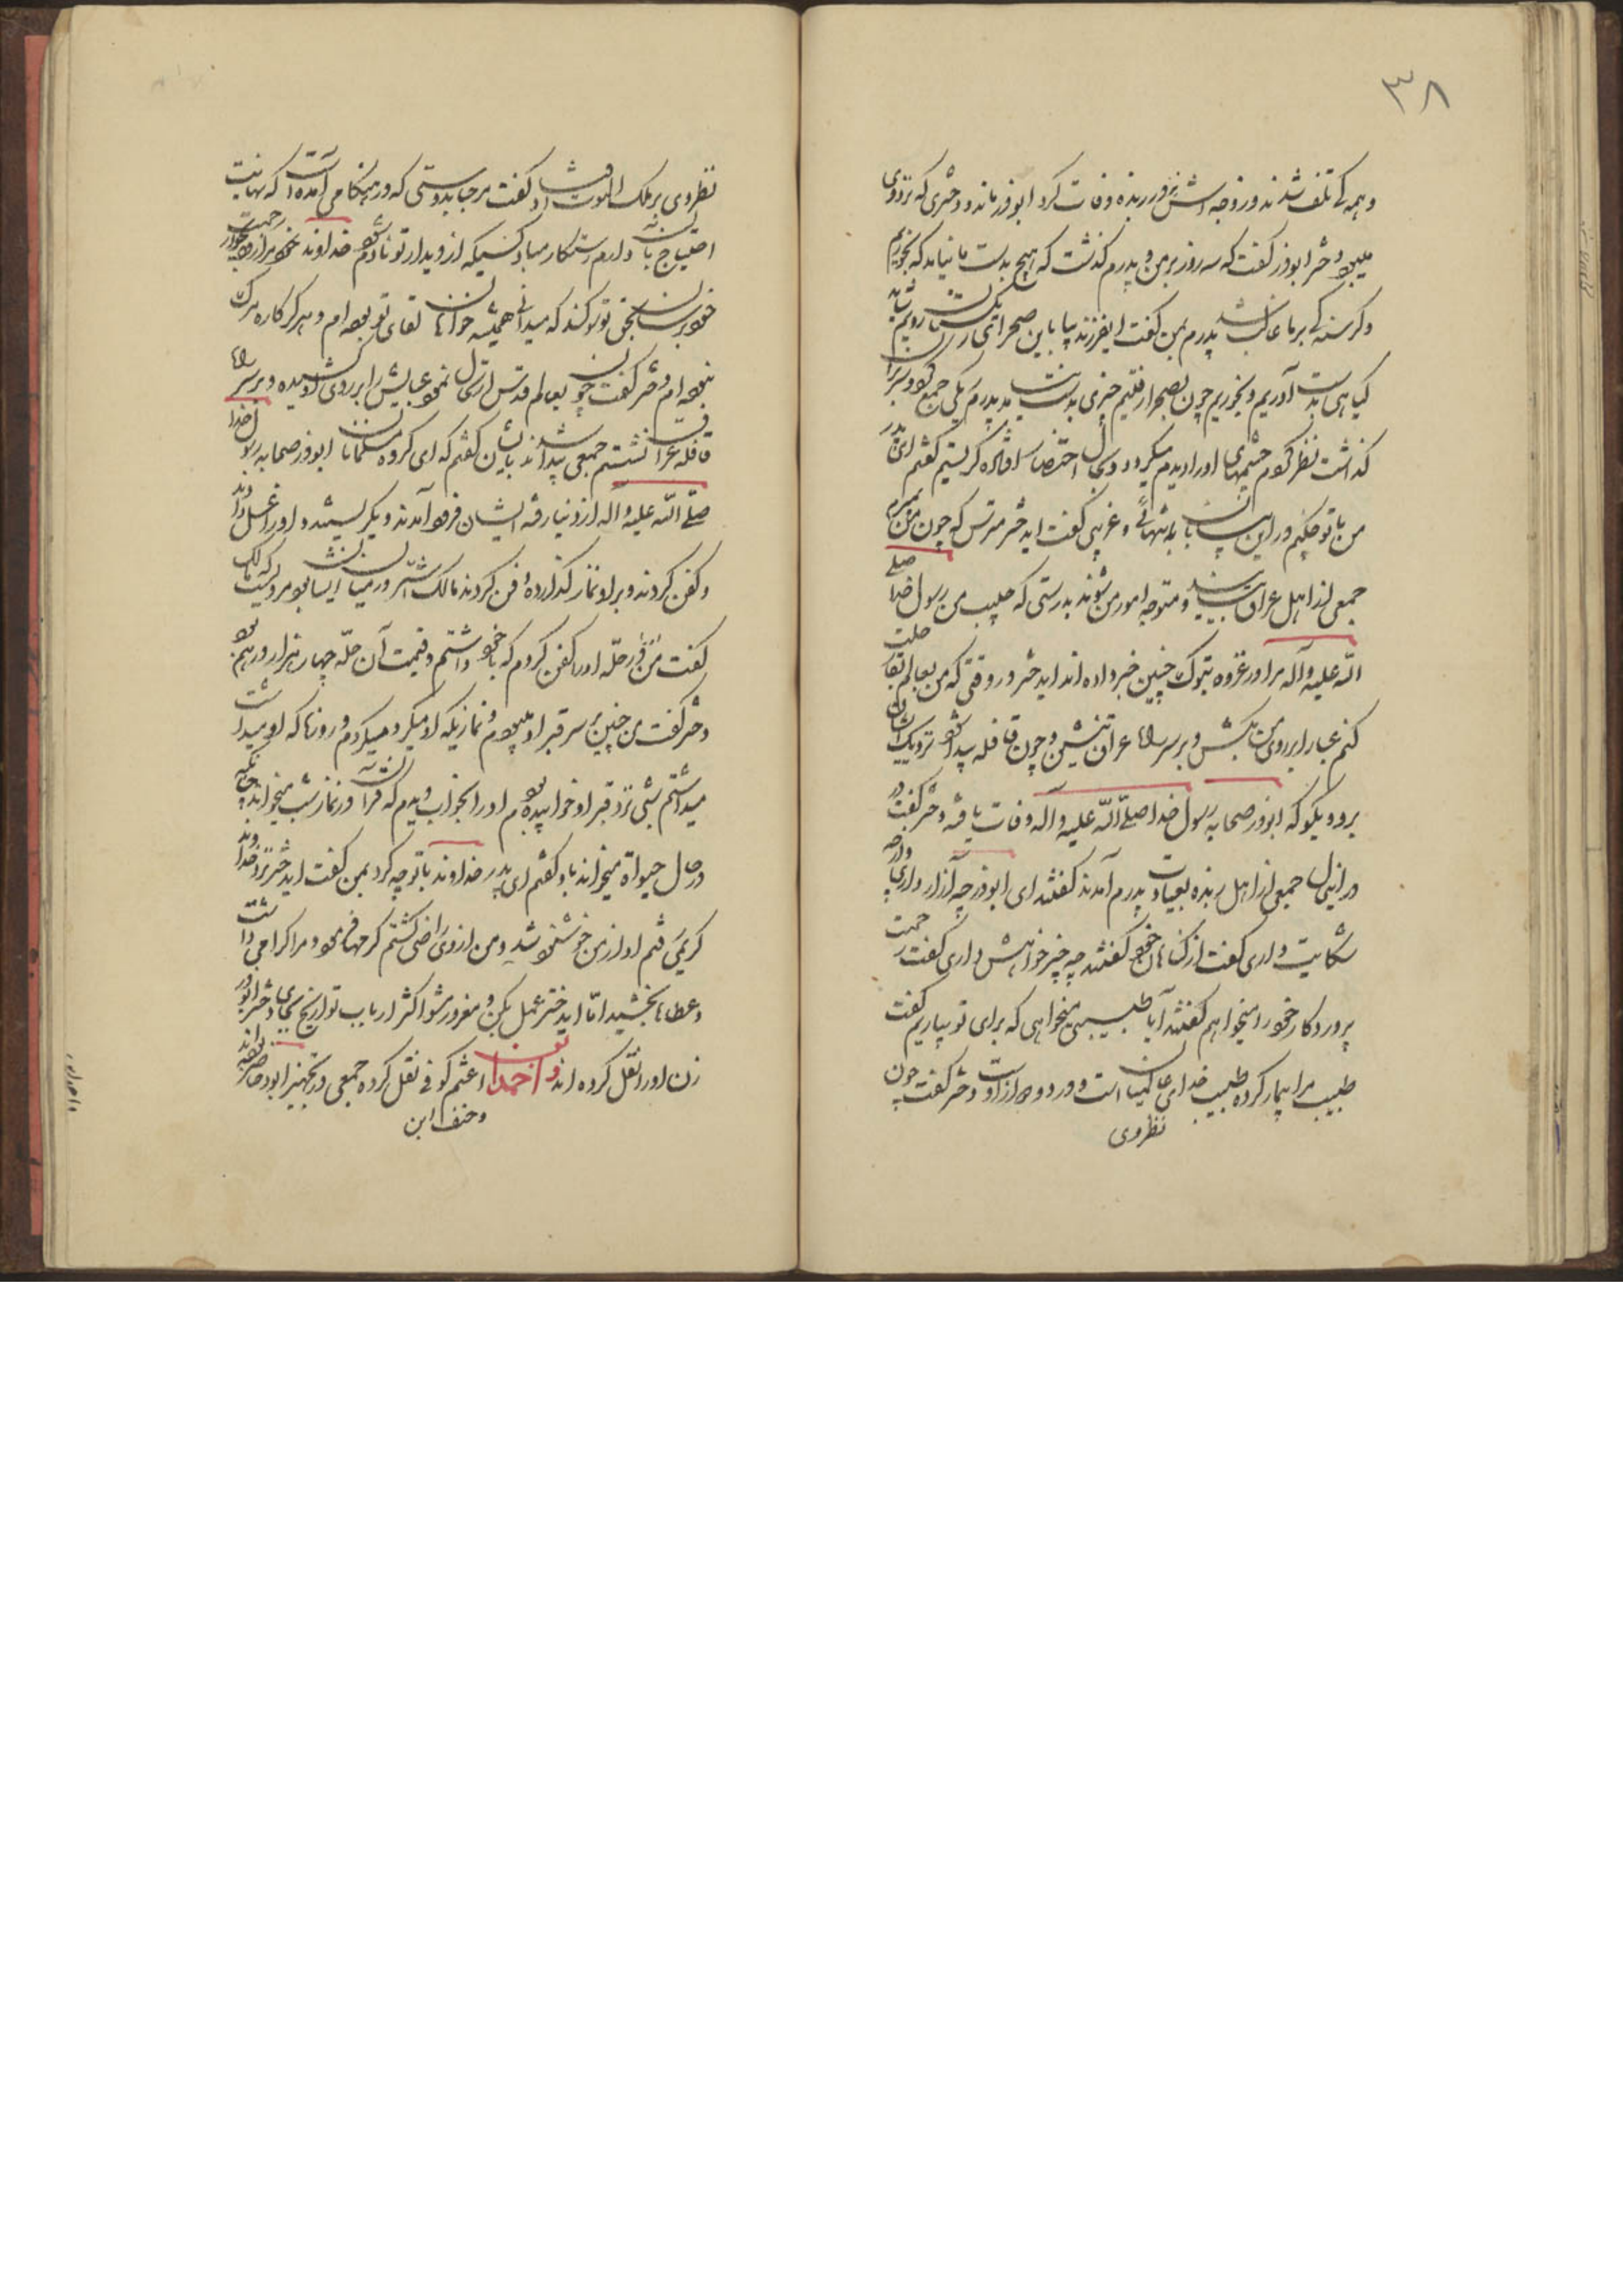 ٣٨
و همه کی تلف شدند و زوجه اش نیز در ربذه وفات کرد ابوذر ماند و دختری که نزد وی
میبود دختر ابوذر گفت که سه روز بر من و پدرم گذشت که هیچ بدست ما نیامد که بخوریم
و گرسنگی بر ما غالب شد پدرم بمن گفت ایفرزند بیا باین صحرای ریگستان رویم شاید
گیاهی بدست آوریم و بخوریم چون بصحرا رفتیم چیزی بدست نیامد پدرم ریگی جمع نمود و سر بر آن
گذاشت نظر کردم چشمهای او را دیدم میگردد و بحال احتضار افتاده گریستم گفتم ای پدر
من با تو چکنم در این بیابان به تنهائی و غریبی گفت ایدختر مترس که چون من بمیرم
جمعی از اهل عراق بیایند و متوجه امور من شوند بدرستی که حبیب من رسول خدا صلی
الله علیه وآله مرا در غزوه تبوک چنین خبر داده اند ایدختر در وقتی که من بعالم بقا رحلت
کنم عبا را بر روی من بکش و بر سر راه عراق بنشین و چون قافله پیدا شود نزدیک ایشان
برو و بگو که ابوذر صحابه رسول خدا صلی الله علیه وآله وفات یافته دختر گفت در
در اینحال جمعی از اهل ربذه بعیادت پدرم آمدند گفتند ای ابوذر چه آزار داری و از چه
شکایت داری گفت از گناهان خود گفتند چه چیز خواهش داری گفت رحمت
پروردگار خود را میخواهم گفتند آیا طبیبی میخواهی که برای تو بیاریم گفت
طبیب مرا بیمار کرده طبیب خدای عالمیان است و درد و دوا از اوست دختر گفت چون
نظر وی
نظر وی بر ملک الموت افتاد گفت مرحبا بدوستی که در هنگامی آمده است که نهایت
احتیاج باو دارم رستگار مباد کسیکه از دیدار تو نادم شود خداوندا مرا زود بجوار رحمت
خود برسان بحق تو سوگند که میدانی همیشه خواهان لقای تو بوده ام و هرگز کاره مرگ
نبوده ام دختر گفت چون بعالم قدس ارتحال نمود عبایش را بر روی او کشیده و بر سر راه
قافله عراق نشستم جمعی پیدا شدند بایشان گفتم که ای گروه مسلمانان ابوذر صحابه رسول خدا
صلی الله علیه وآله از دنیا رفته ایشان فرود آمدند و بگریستند و او را غسل دادند
و کفن کردند و بر او نماز گذارده دفن کردند مالک اشتر در میان ایشان بود مرویست که مالک
گفت من در حله او را کفن کردم که با خود داشتم و قیمت آن حله چهار هزار درهم بود
دختر گفت من چنین بر سر قبر او میبودم و نمازیکه او میکرد میکردم و روزه که او میداشت
میداشتم شبی نزد قبر او خوابیده بودم او را بخواب دیدم که قرآن در نماز شب میخواند چنانکه
در حال حیوة میخواند باو گفتم ای پدر خداوند با تو چه کرد بمن گفت ایدختر نزد خداوند
کریمی رفتم او از من خوشنود شد و من از وی راضی گشتم کرمها فرمود و مرا گرامی داشت
و عطاها بخشید امّا ایدختر عمل بکن و مغرور مشو اکثر ارباب تواریخ بجای دختر ابوذر
زن او را نقل کرده اند و احمد ابن اعثم کوفی نقل کرده جمعی در تجهیز ابوذر حاضر بودند
و حنف ابن